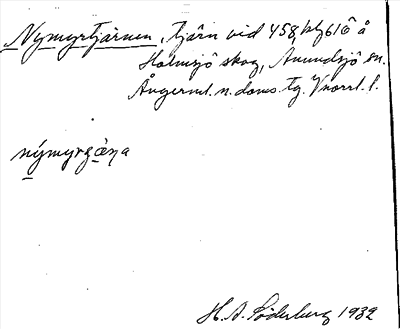 Nymyrtjärnen, tjärn vid 458, kly616 å
Holmsjö skog, Anundsjö sn.
Ångerml. n. doms. tg. Vnorrl. l.
nýmyrgæṇa
H. A. Söderberg 1932